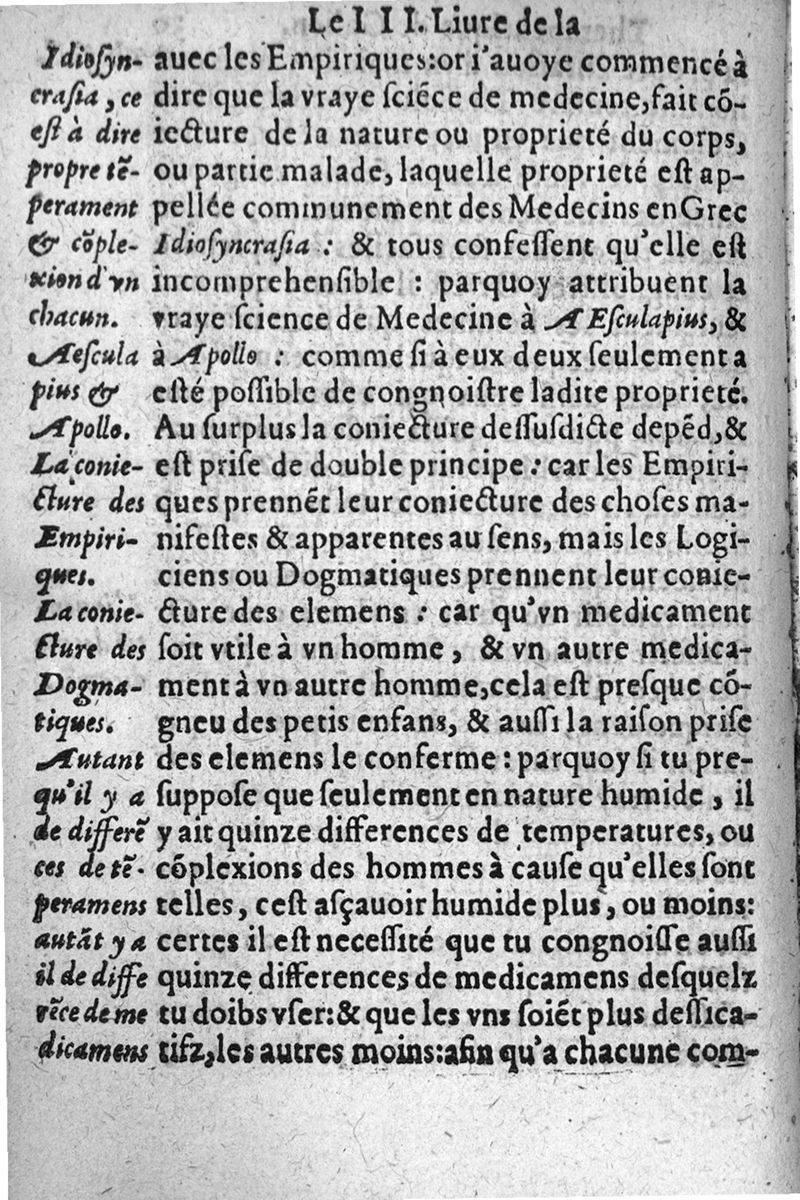 Le III. Liure de la
Idioſyn-
craſia, ce
eſt à dire
propre tẽ-
perament
& cõple-
xion d'vn
chacun.
Aeſcula
pius &
Apollo.
La conie-
cture des
Empiri-
ques.
La conie-
cture des
Dogma-
tiques.
Autant
qu'il y a
de differẽ
ces de tẽ-
peramens
autãt y a
il de diffe
rẽce de me
dicamens
auec les Empiriques:or i'auoye commencé à
dire que la vraye ſciéce de medecine,fait cõ-
iecture de la nature ou proprieté du corps,
ou partie malade, laquelle proprieté eſt ap-
pellée communement des Medecins en Grec
Idioſyncraſia : & tous confeſſent qu'elle eſt
incomprehenſible : parquoy attribuent la
vraye ſcience de Medecine à AEſculapius, &
à Apollo : comme ſi à eux deux ſeulement a
eſté poſſible de congnoiſtre ladite proprieté.
Au ſurplus la coniecture deſſuſdicte depẽd,&
eſt priſe de double principe : car les Empiri-
ques prennẽt leur coniecture des choſes ma-
nifeſtes & apparentes au ſens, mais les Logi-
ciens ou Dogmatiques prennent leur conie-
cture des elemens : car qu'vn medicament
ſoit vtile à vn homme, & vn autre medica-
ment à vn autre homme,cela eſt preſque cõ-
gneu des petis enfans, & auſſi la raiſon priſe
des elemens le conferme : parquoy ſi tu pre-
ſuppoſe que ſeulement en nature humide, il
y ait quinze differences de temperatures, ou
cõplexions des hommes à cauſe qu'elles ſont
telles, ceſt aſçauoir humide plus, ou moins:
certes il eſt neceſſité que tu congnoiſſe auſſi
quinze differences de medicamens deſquelz
tu doibs vſer:& que les vns ſoiẽt plus deſſica-
tifz,les autres moins:afin qu'a chacune com-